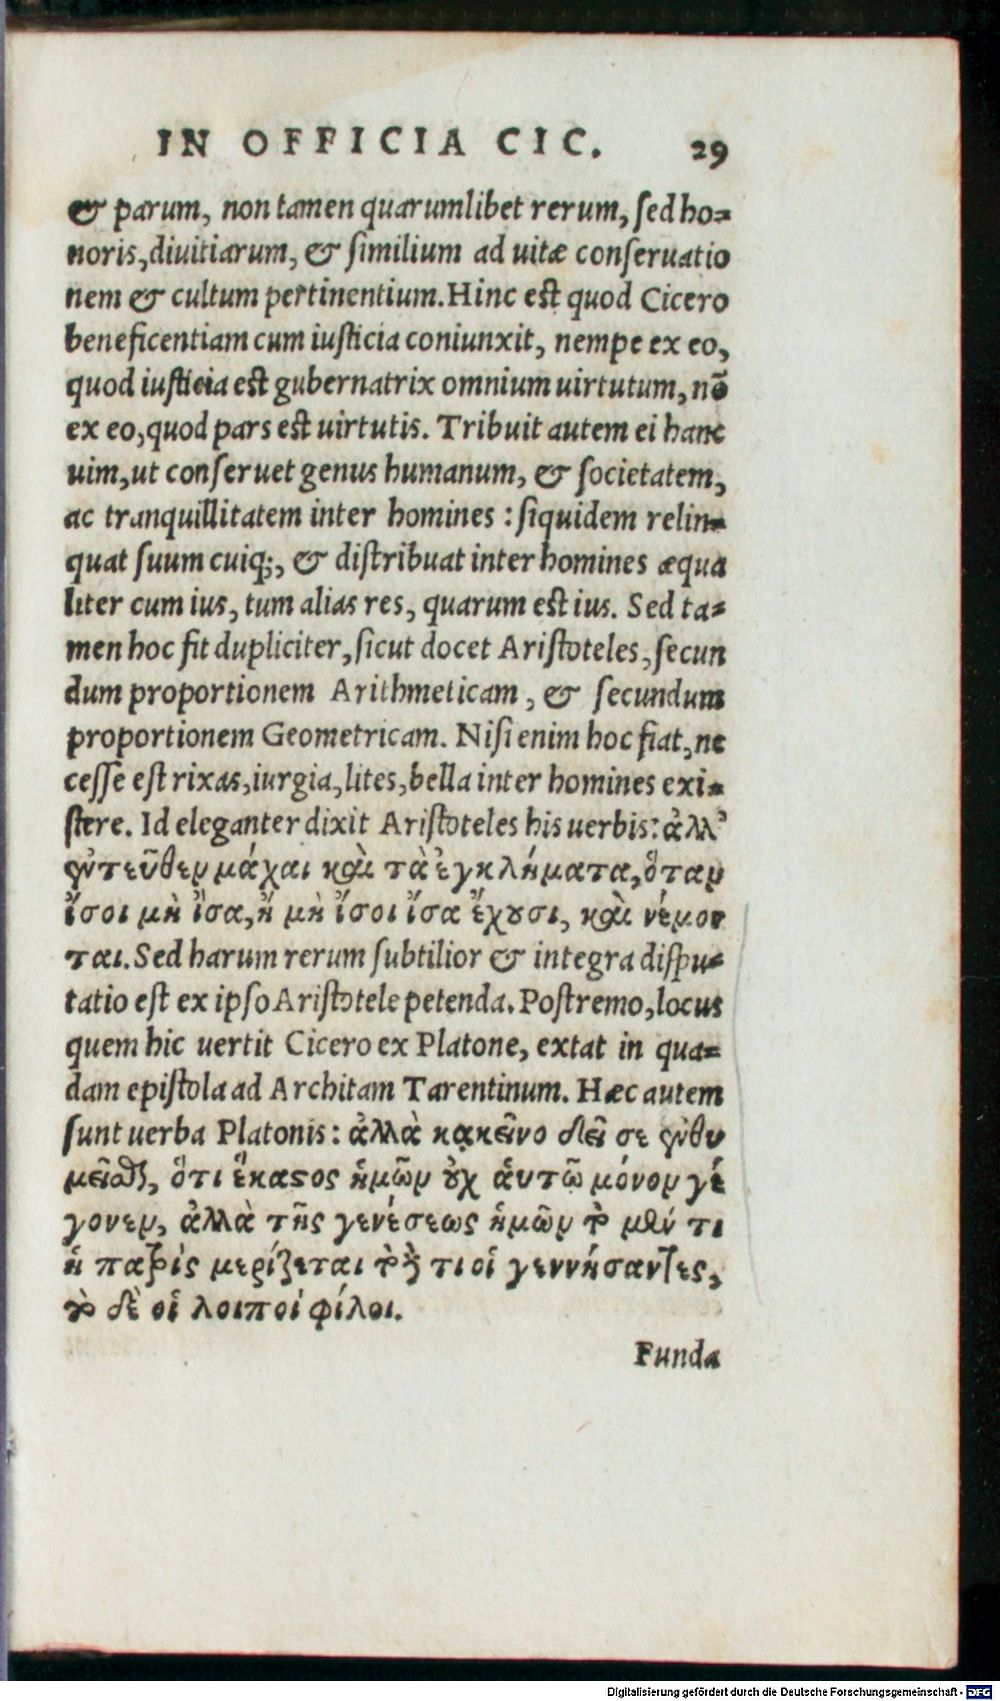 IN OFFICIA CIC. 29
& parum, non tamen quarumlibet rerum, sed ho=
noris, diuitiarum, & similium ad uitæ conseruatio
nem & cultum pertinentium. Hinc est quod Cicero
beneficentiam cum iusticia coniunxit, nempe ex eo,
quod iusticia est gubernatrix omnium uirtutum, nō
ex eo, quod pars est uirtutis. Tribuit autem ei hanc
uim, ut conseruet genus humanum, & societatem,
ac tranquillitatem inter homines : siquidem relin=
quat suum cuiq;, & distribuat inter homines æqua
liter cum ius, tum alias res, quarum est ius. Sed ta=
men hoc fit dupliciter, sicut docet Aristoteles, secun
dum proportionem Arithmeticam, & secundum
proportionem Geometricam. Nisi enim hoc fiat, ne
cesse est rixas, iurgia, lites, bella inter homines exi=
stere. Id eleganter dixit Aristoteles his uerbis: ἀλλ'
ἐντεῦθεν μάχαι καὶ τὰ ἐγκλήματα, ὅταν
ἴσοι μὴ ἴσα, ἢ μὴ ἴσοι ἴσα ἔχουσι, καὶ νέμον
ται. Sed harum rerum subtilior & integra dispu=
tatio est ex ipso Aristotele petenda. Postremo, locus
quem hic uertit Cicero ex Platone, extat in qua=
dam epistola ad Architam Tarentinum. Hæc autem
sunt uerba Platonis: ἀλλὰ κᾀκεῖνο δεῖ σε ἐνθυ
μεῖσθαι, ὅτι ἕκαστος ἡμῶν οὐχ ἁυτῷ μόνον γέ
γονεν, ἀλλὰ τῆς γενέσεως ἡμῶν τὸ μέν τι
ἡ πατρὶς μερίζεται τὸ δέ τι οἱ γεννήσαντες,
τὸ δὲ οἱ λοιποὶ φίλοι.
Funda
Digitalisierung gefördert durch die Deutsche Forschungsgemeinschaft - DFG